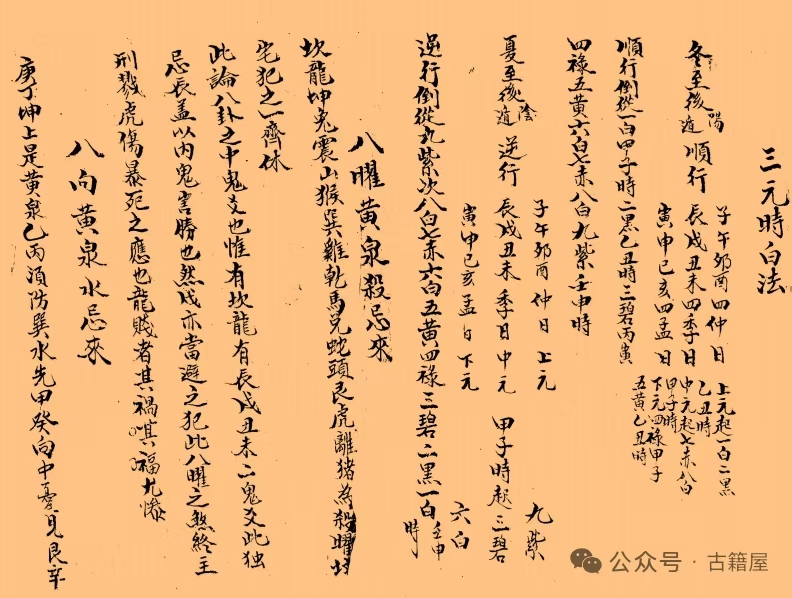 三元時白法
冬至後陽遁順行 子午卯酉四仲日 上元起一白二黑乙丑時
辰戌丑未四季日 中元起七赤八白甲子時
寅申巳亥四孟日 下元四祿甲子五黃乙丑時
順行倒從一白甲子時二黑乙丑時三碧丙寅
四祿五黃六白七赤八白九紫壬申時
夏至後陰遁逆行 子午卯酉仲日上元 九紫
辰戌丑未季日中元 甲子時起三碧
寅申巳亥孟日下元 六白
逆行倒從九紫次八白七赤六白五黃四祿三碧二黑一白壬申時
八曜黃泉殺忌來
坎龍坤兔震山猴巽雞乾馬兌蛇頭艮虎離猪為殺曜
宅犯之一齊休
此論八卦之中鬼爻也惟有坎龍有辰戌丑未二鬼爻此獨
忌辰盖以內鬼害勝也然戌亦當避之犯此八曜之煞終主
刑戮虎傷暴死之應也龍賤者其禍
福尤慘
八向黃泉水忌來
庚丁坤上是黃泉乙丙須防巽水先甲癸向中憂見艮辛
公众号·古籍屋